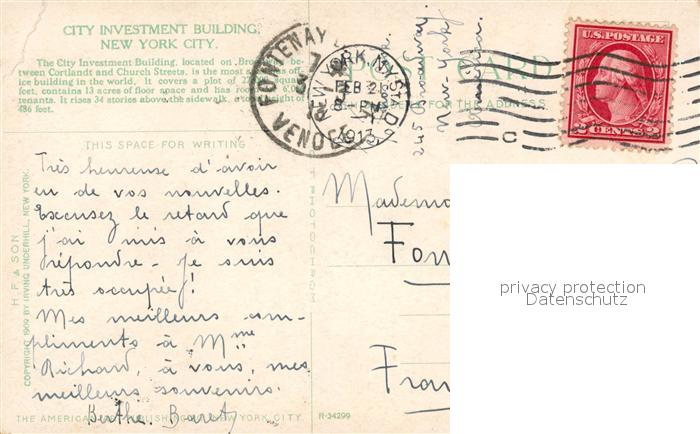 CITY INVESTMENT BUILDING,
NEW YORK CITY.
The City Investment Building, located on
tween Cortlandt and Church Streets, is the most
ice building in the world. It covers a plot of
feet, contains 13 acres of floor space and has
tenants. It rises 34 stories above the sidewalk, a
486 feet.
FONTENAY
VENDEE
NEW YORK, N.Y.
FEB 2
1913
245 Broadway.
New York
U.S. POSTAGE
2 CENTS 2
C
THIS SPACE FOR WRITING
FOR THE ADDRESS
Très heureuse d'avoir
eu de vos nouvelles.
Excusez le retard que
j'ai mis à vous
répondre - je suis
très occupée!
Mes meilleurs com-
pliments à Mme
Richard, à vous, mes
meilleurs souvenirs.
Berthe
Madem
Fon
Fran
H. F. & SON
COPYRIGHT 1909 BY IRVING UNDERHILL, NEW YORK.
THE AMERICAN NEW YORK CITY.
R-34299
privacy protection
Datenschutz